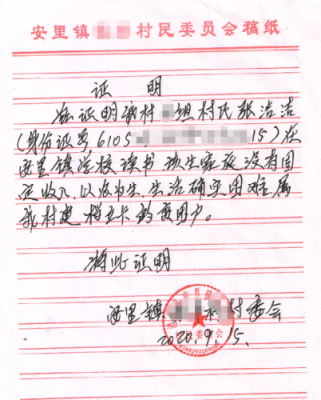 安里镇 村民委员会稿纸
证 明
兹证明我村 组村民张洁洁
(身份证号,6105 15)在
安里镇学校读书,该生家庭没有固
定收入,以农为生,生活确实困难,属
我村建档立卡的贫困户。
特此证明
安里镇 村委会
2020.9.15.